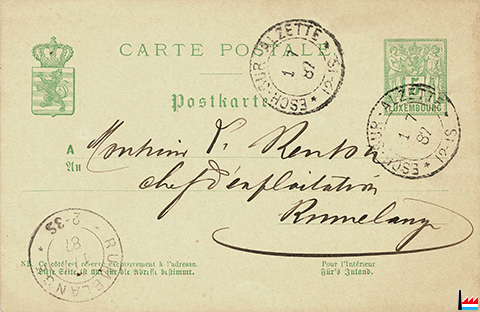 CARTE POSTALE
Postkarte
LUXEMBOURG
ESCH-SUR-ALZETTE * 12-1S.
1 7 87
ESCH-SUR-ALZETTE * 12-1S.
1 7 87
A
An
Monsieur
chef d'exploitation
Rumelange
RUMELANGE * 2-3S
87
NB. Ce côté est réservé exclusivement à l'adresse.
Diese Seite ist nur für die Adresse bestimmt.
Pour l'Intérieur
Für's Inland.